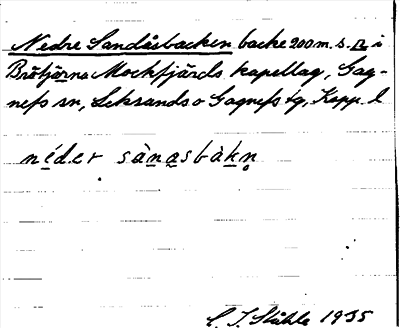 Nedre Sandåsbacken backe 200 m. s. n i
Brötjärns Mockfjärds kapellag, Gag-
nefs sn, Leksands o Gagnefs tg, Kopp. l
néder sànasbàkn̥
C. I. Ståhle 1935